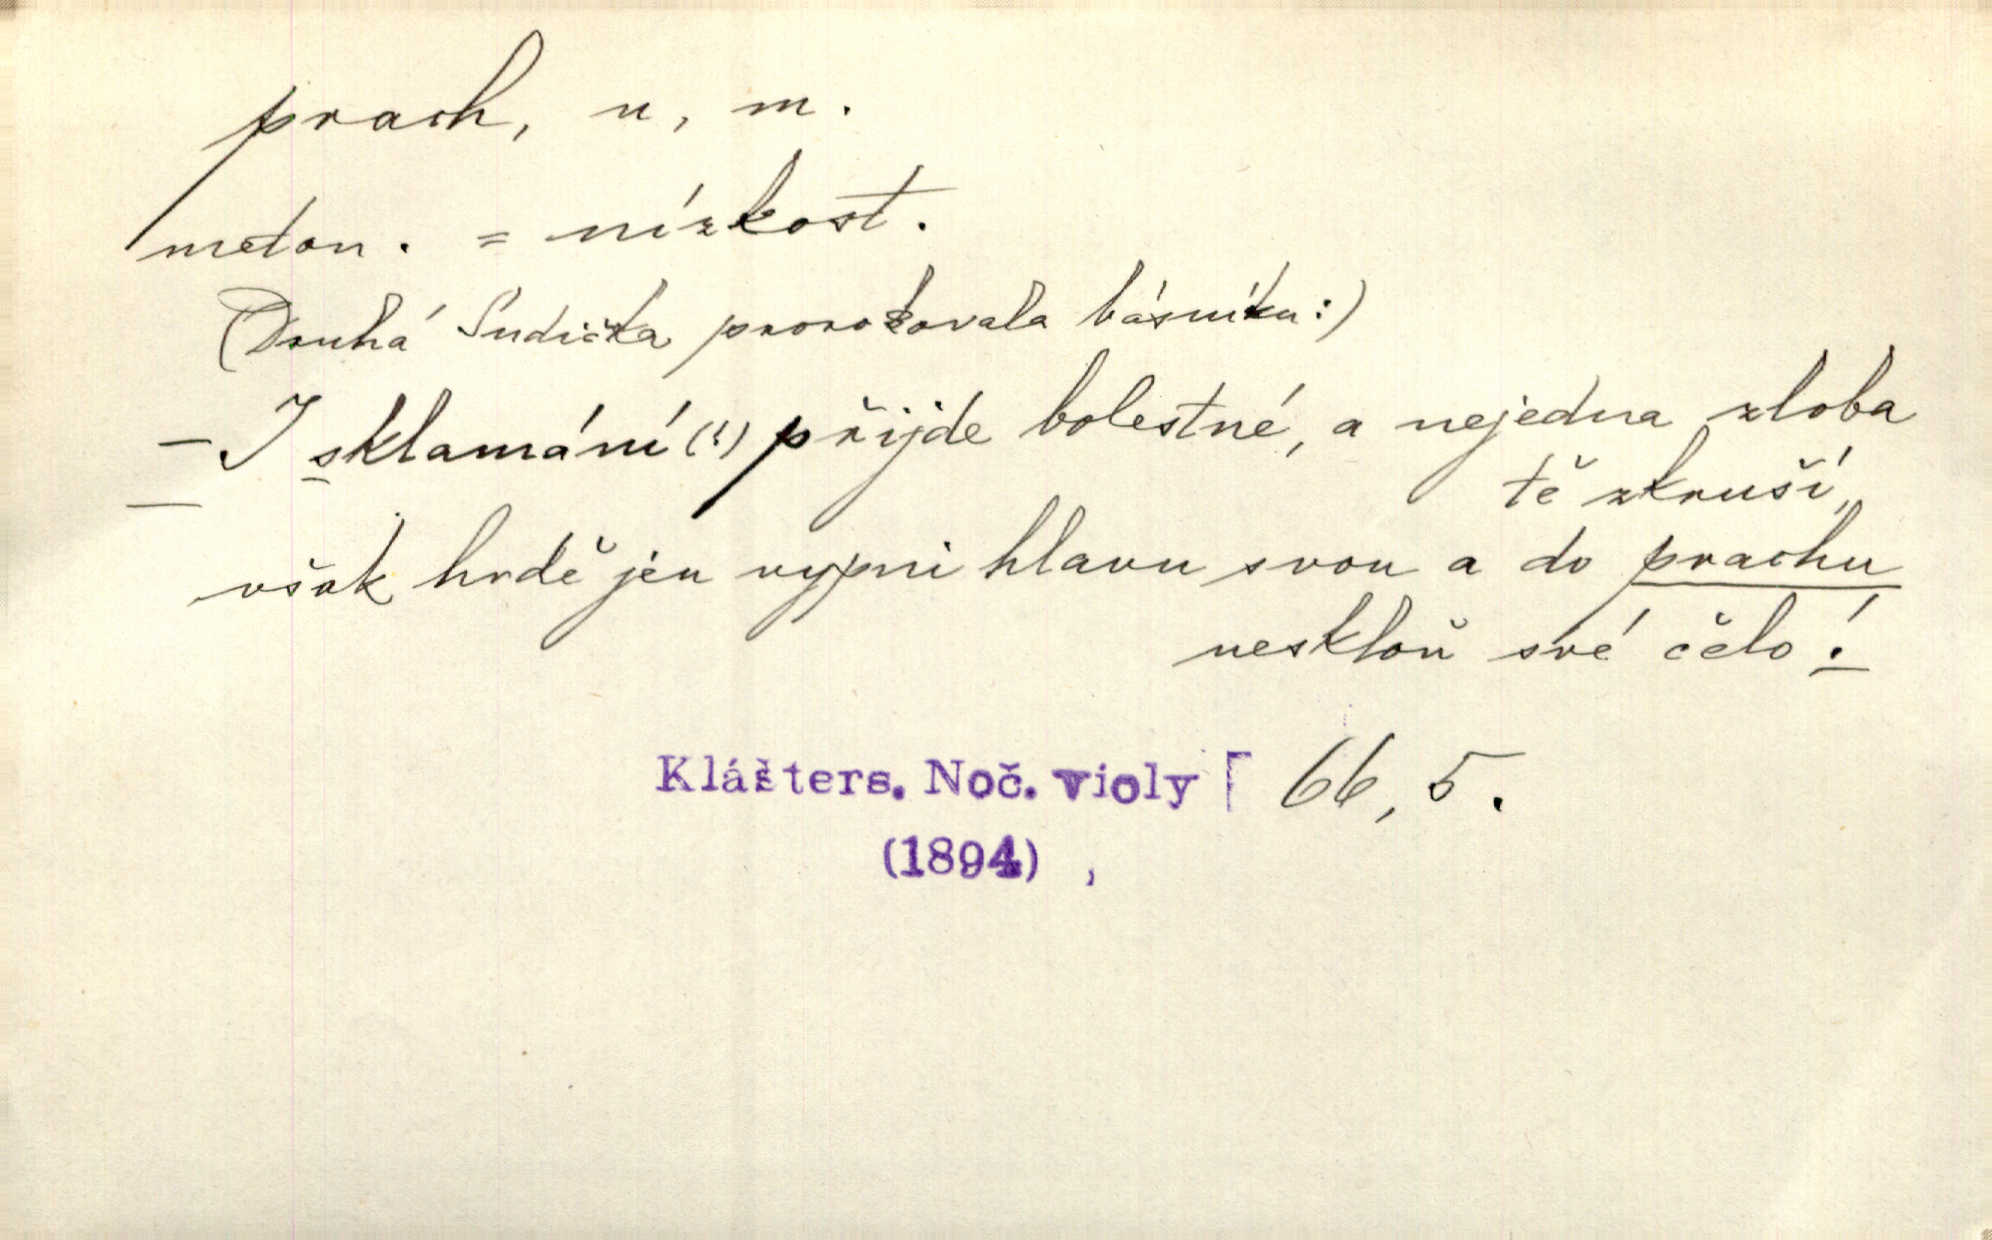 prach, u, m.
meton. = nízkost.
(Druhá Sudička prorokovala básníku:)
– I sklamání (!) přijde bolestné, a nejedna zloba
tě zkruší,
však hrdě jen vypni hlavu svou a do prachu
neskloň své čelo!
Klášters. Noč. violy 66, 5.
(1894) ,